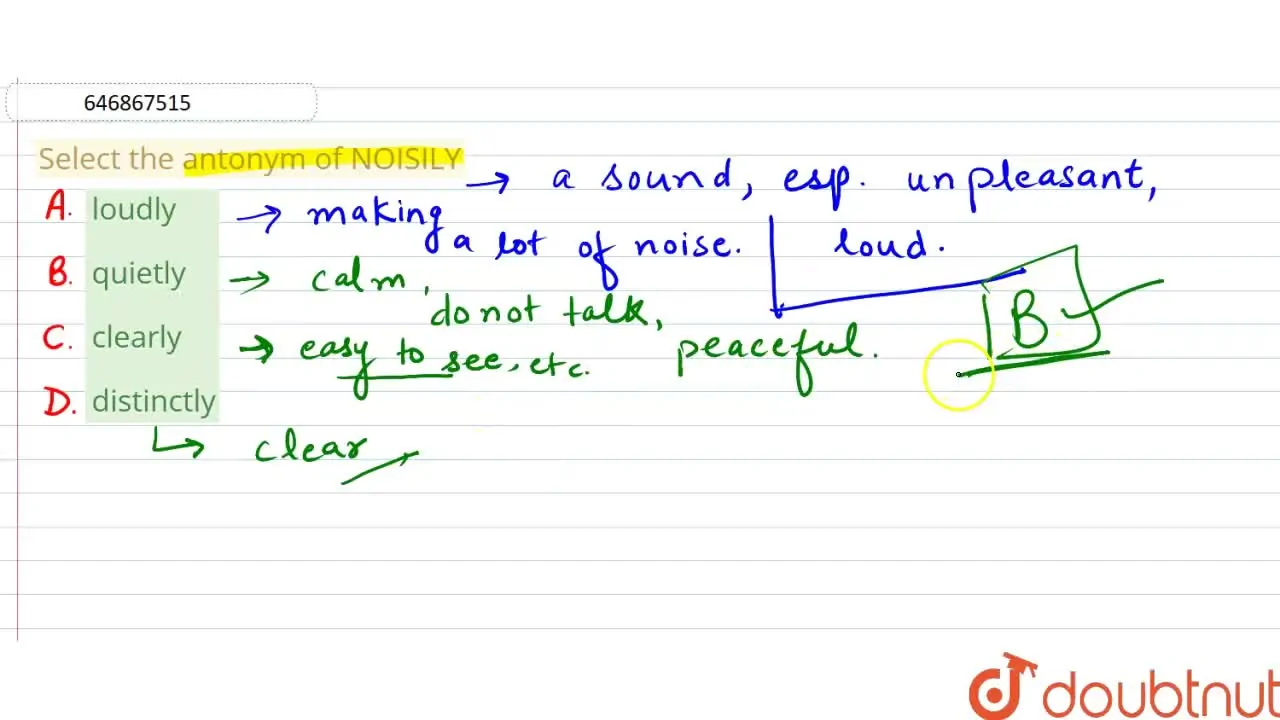 646867515
Select the antonym of NOISILY
→ a sound, esp. unpleasant,
loud.
A. loudly → making
a lot of noise.
B. quietly → calm,
do not talk,
peaceful.
C. clearly → easy to see, etc.
D. distinctly
↳ clear
B
doubtnut